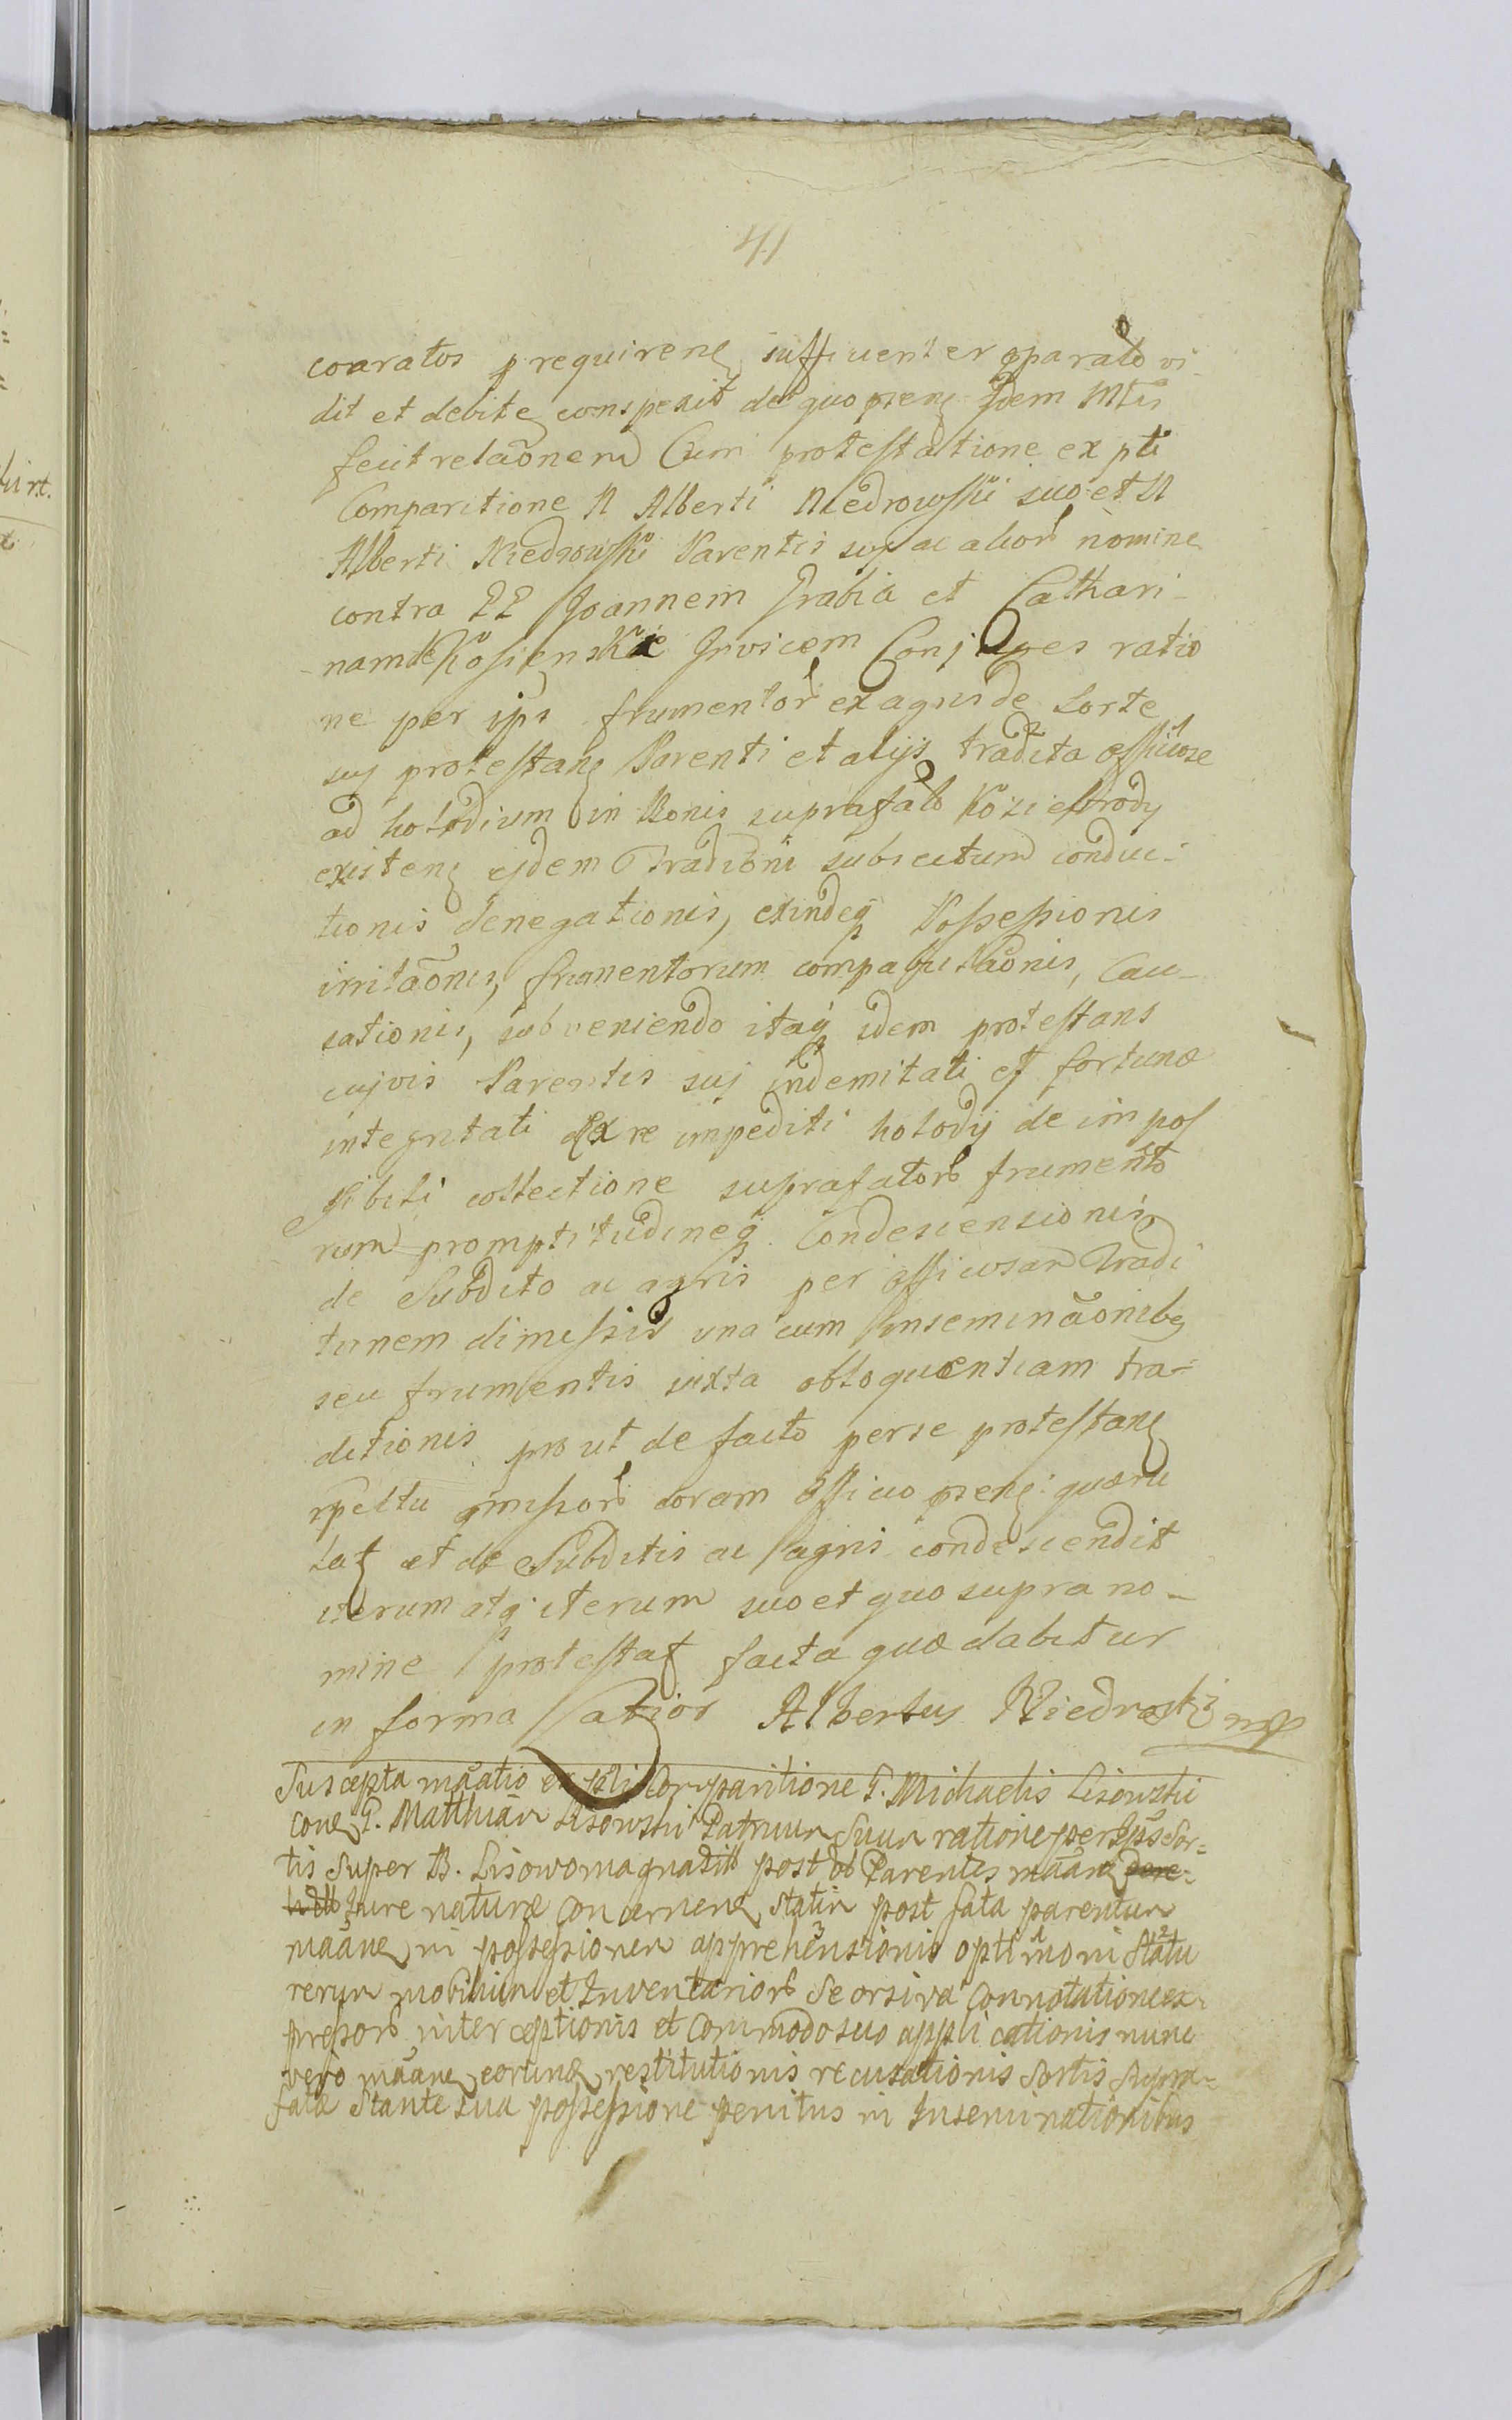 41
coaratos p requirene sufficienter pparato vi-
dit et debite conspexit de quo psene Idem Mtis
fecit relaõnem Cum protestatione ex pti
Comparitione N Alberti Niedrowski suo et N
Alberti Niedrowski Parentis suj ac alior nomine
contra PP Joannem Grabia et Cathari-
nam de Kosienskie Invicem Conjuges ratio
ne per ips frumentor ex agris de sorte
suj protestane Parenti et alijs tradita officiose
ad holodium in Bonis suprafato Koziebrody
existene ejdem Traditõni subsecutum conduc-
tionis denegationis, exindeq Possessionis
irritaõnis, frumentorum compa Itaõnis, Cau-
sationis, subveniendo itaq idem protestans
cujvis Parentis suj indemitati et fortunæ
integritati ex re impediti holodij de impos
sibili collectione suprafator frumento
rum promptitudineq Condescensionis
de Subdito ac agris per officiosam Tradi
tionem dimissis una cum Inseminãonibs
seu frumentis juxta obloquentiam tra-
ditionis prout de facto per se protestane
rpectu pmissor coram Officio psene quæru
lat et de Subditis ac agris condescendit
iterum atq iterum suo et quo supra no-
mine protestat facta quæ dabitur
in forma latior Albertus Niedroski mp
Suscepta mãatio ex pti Comparitione G. Michaelis Lisowski
cone G. Matthiam Lisowski Patruum Suum ratione per Ips Sor-
tis super B. Lisowo magna sit post ob Parentis mãane dere-
licto Jure naturæ concernene statim post fata parentum
mãane in possessionem apprehensionis optimo in statu
rerum mobilium et Inventarior Seorsiva connotatione ex-
pressor interceptionis et commodo suo applicationis nunc
vero mãane eorund restitutionis recusationis Sortis supra-
fatæ Stante sua possessione penitus in Inseminationibus